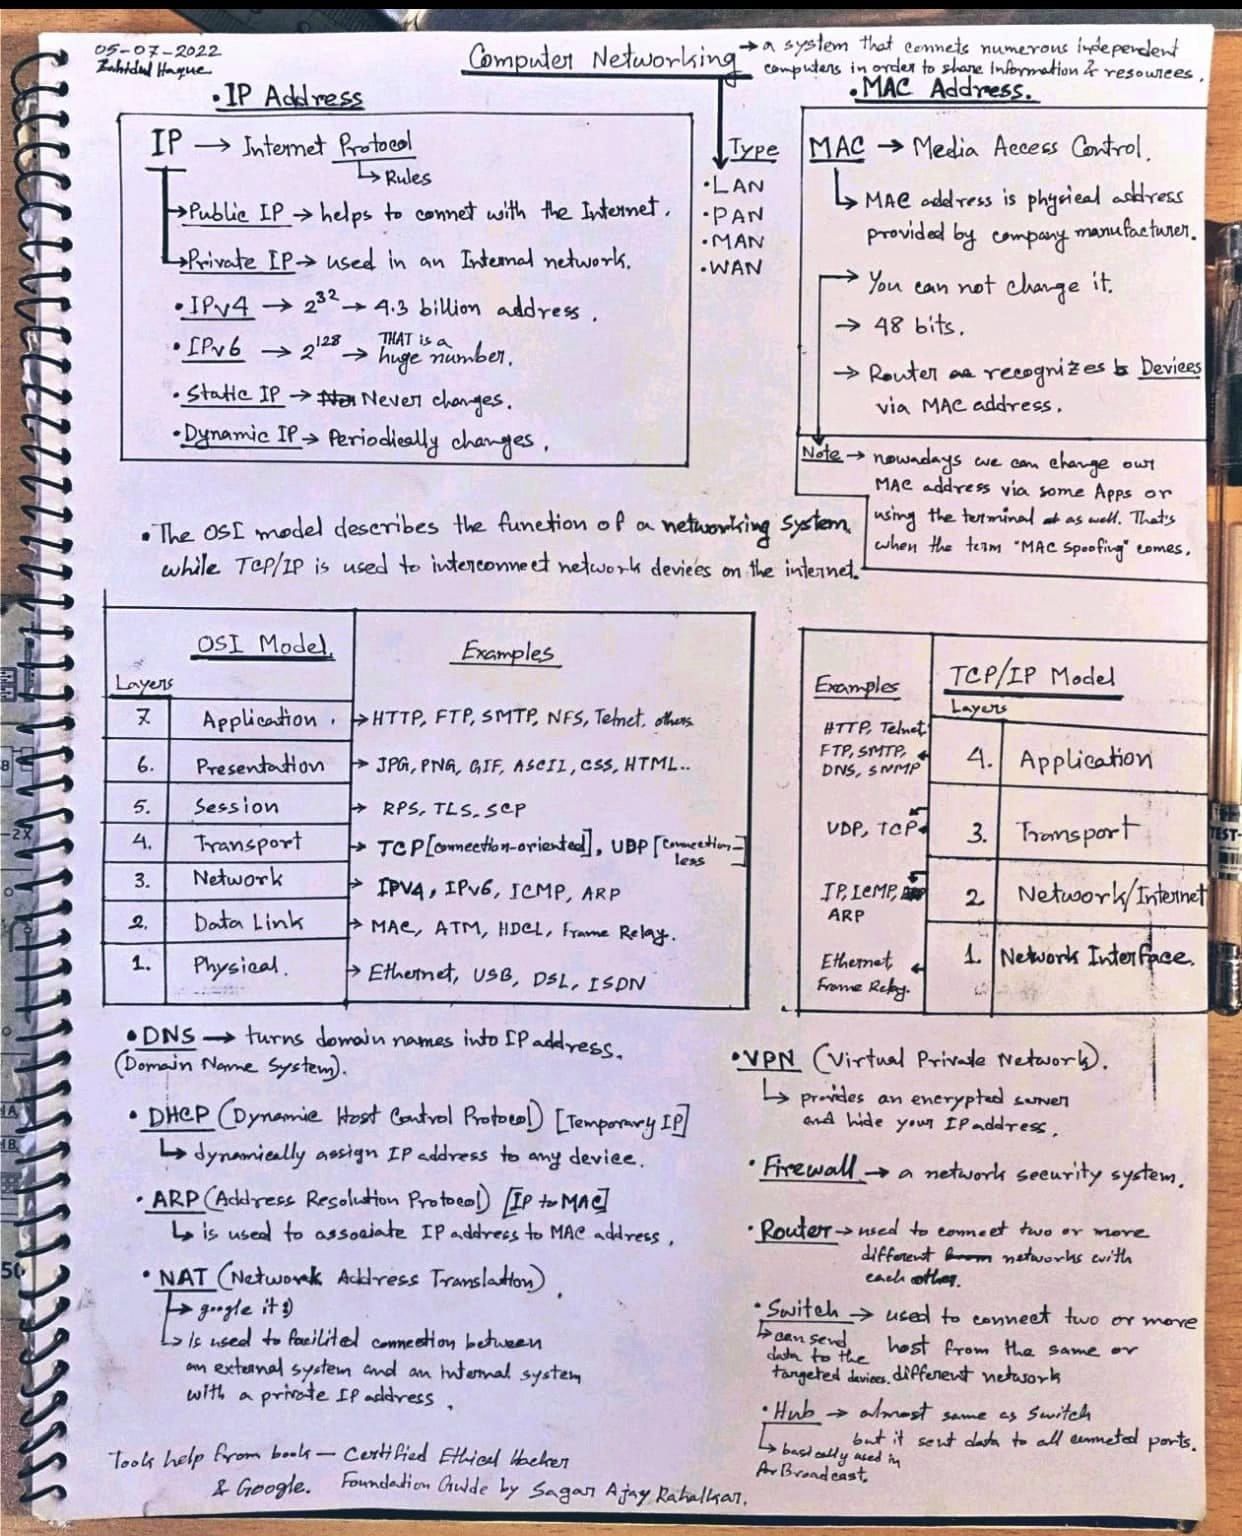 05-07-2022
Zahidul Haque
Computer Networking → a system that connets numerous independent
computers in order to share information & resources.
• IP Address
IP → Internet Protocol
↳ Rules
→ Public IP → helps to connet with the Internet.
→ Private IP → used in an Internal network.
• IPv4 → 2^32 → 4.3 billion address.
• IPv6 → 2^128 → THAT is a
huge number.
• Static IP → Never changes.
• Dynamic IP → Periodically changes.
Type
• LAN
• PAN
• MAN
• WAN
• MAC Address.
MAC → Media Access Control.
↳ MAC address is physical address
provided by company manufacturer.
→ You can not change it.
→ 48 bits.
→ Router recognizes Devices
via MAC address.
Note → nowadays we can change our
MAC address via some Apps or
using the terminal as well. That's
when the term "MAC Spoofing" comes.
• The OSI model describes the function of a networking system
while TCP/IP is used to interconnect network devices on the internet.
OSI Model. Examples
Layers
7. Application. → HTTP, FTP, SMTP, NFS, Telnet, others
6. Presentation → JPG, PNG, GIF, ASCII, CSS, HTML..
5. Session → RPS, TLS. SCP
4. Transport → TCP [connection-oriented], UDP [connection-
less]
3. Network → IPV4, IPv6, ICMP, ARP
2. Data Link → MAC, ATM, HDCL, Frame Relay.
1. Physical. → Ethernet, USB, DSL, ISDN
Examples TCP/IP Model
Layers
HTTP, Telnet
FTP, SMTP,
DNS, SNMP
4. Application
UDP, TCP
3. Transport
IP, ICMP,
ARP
2. Network/Internet
Ethernet,
Frame Relay.
1. Network Interface.
• DNS → turns domain names into IP address.
(Domain Name System).
• DHCP (Dynamic Host Control Protocol) [Temporary IP]
↳ dynamically assign IP address to any device.
• ARP (Address Resolution Protocol) [IP to MAC]
↳ is used to associate IP address to MAC address.
• NAT (Network Address Translation).
↳ google it :)
↳ is used to facilited connection between
an external system and an internal system
with a private IP address.
• VPN (Virtual Private Network).
↳ provides an encrypted server
and hide your IP address.
• Firewall → a network security system.
• Router → used to connect two or more
different networks with
each other.
• Switch → used to connect two or more
host from the same or
different network
↳ can send
data to the
targeted devices.
• Hub → almost same as Switch
but it sent data to all conneted ports.
↳ basically used in
for Broadcast.
Took help from book — Certified Ethical Hacker
& Google. Foundation Guide by Sagar Ajay Rahalkar.